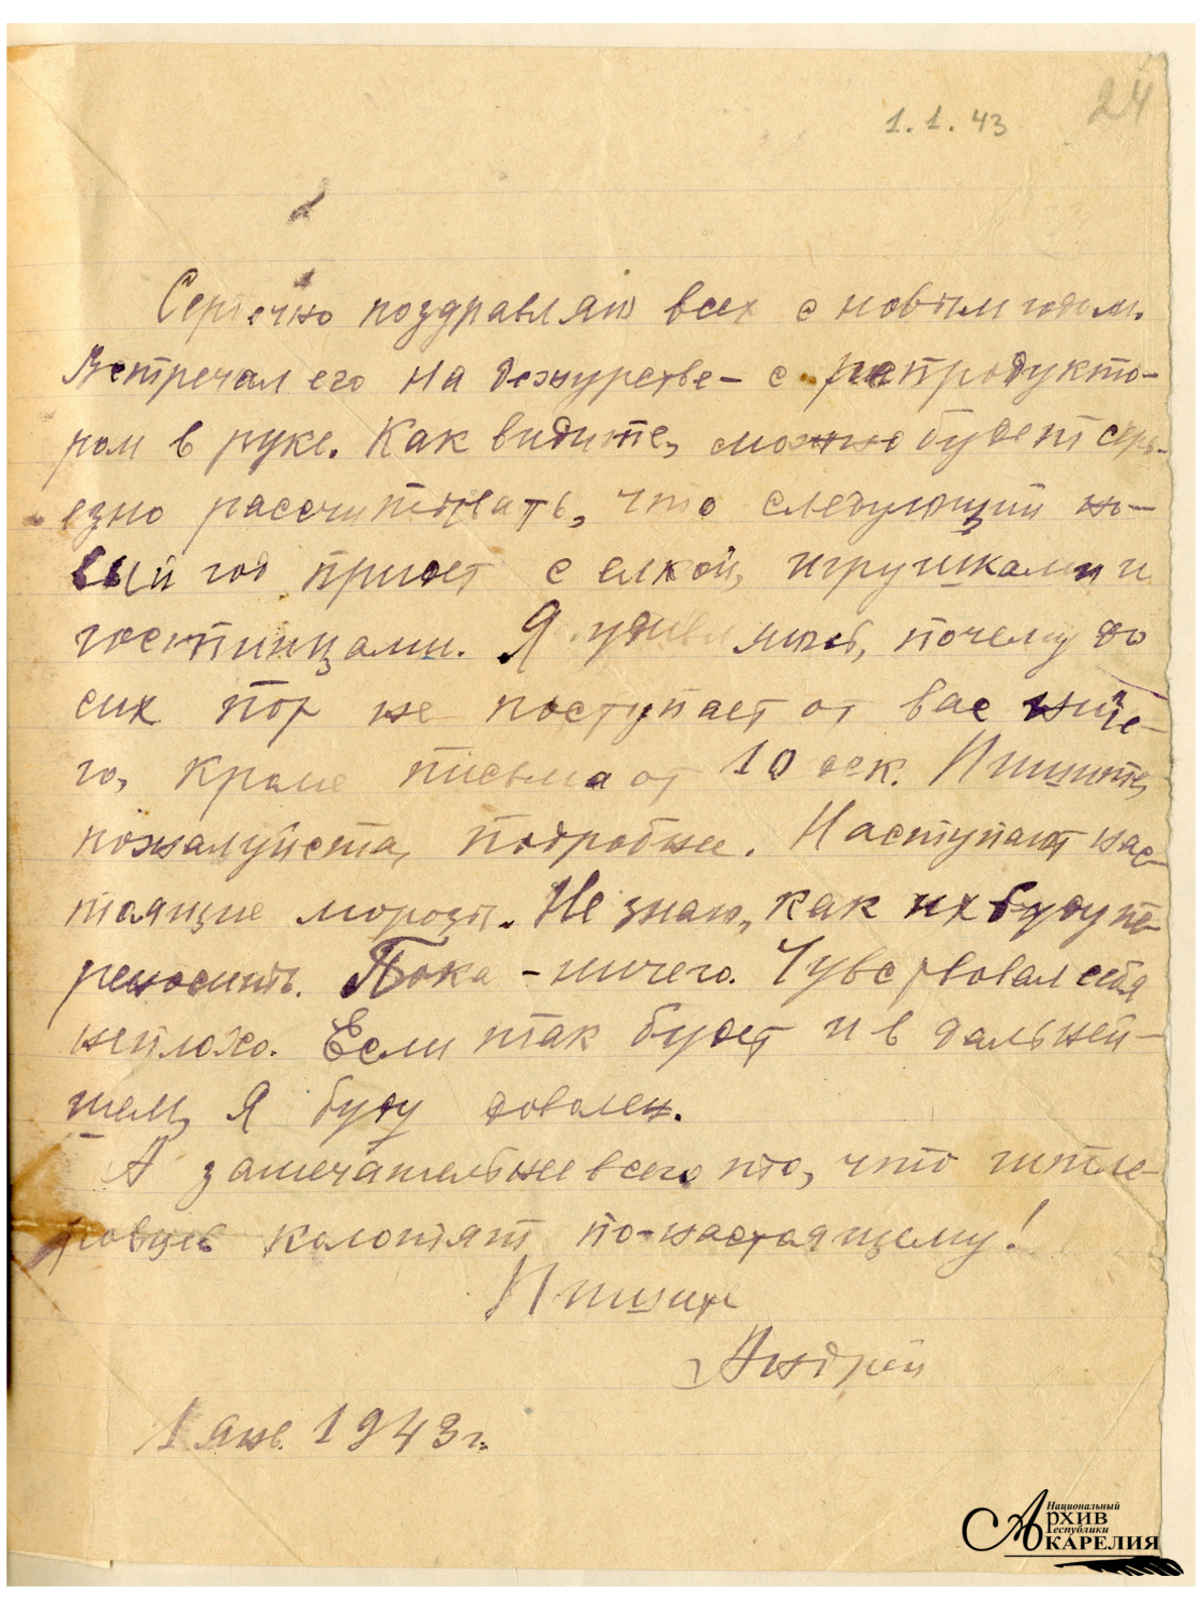 24
1.1.43
Сердечно поздравляю всех с новым годом.
Встречал его на дежурстве – с репродукто-
ром в руке. Как видите, можно будет серь-
езно рассчитывать, что следующий но-
вый год придет с елкой, игрушками и
гостинцами. Я удивляюсь, почему до
сих пор не поступает от вас ниче-
го, кроме письма от 10 дек. Пишите,
пожалуйста, подробнее. Наступают нас-
тоящие морозы. Не знаю, как их буду пе-
реносить. Пока – ничего. Чувствовал себя
неплохо. Если так будет и в дальней-
шем, я буду доволен.
А замечательнее всего то, что гитле-
ровцев колотят по-настоящему!
Пишите
Андрей
1 янв. 1943 г.
Национальный
Архив
Республики
Карелия